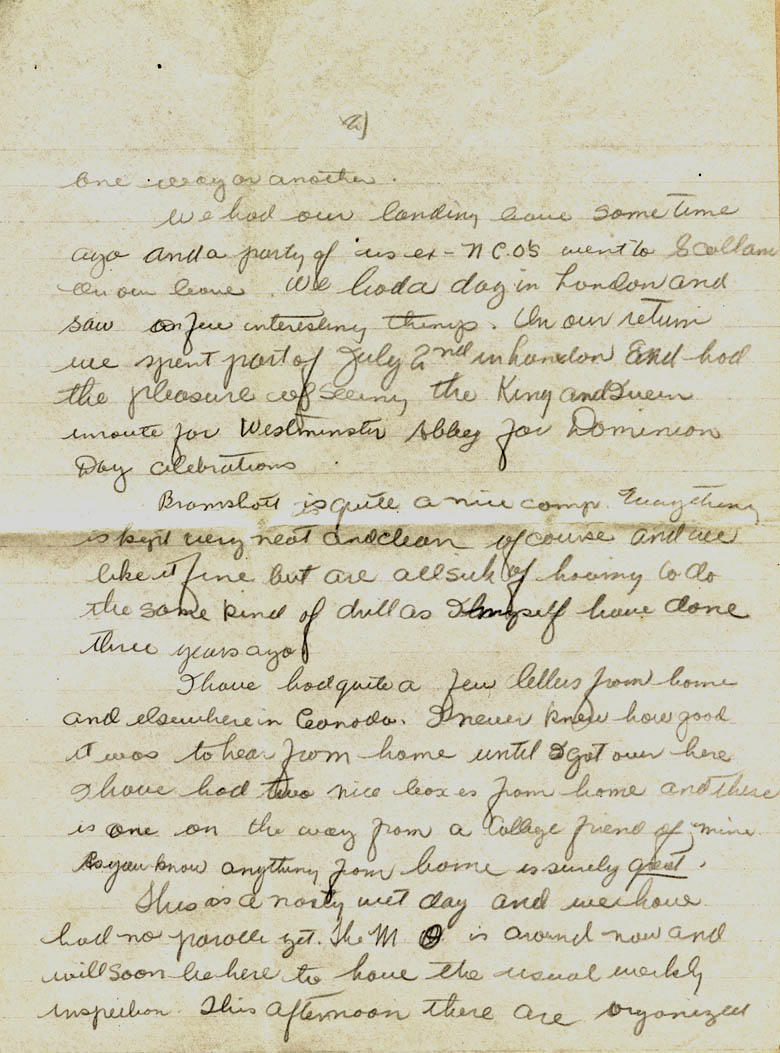 2)
one way or another.
We had our landing leave some time
ago and a party of us ex-N.C.O's went to Scotland
on our leave. We had a day in London and
saw a few interesting things. On our return
we spent part of July 2nd in London and had
the pleasure of seeing the King and Queen
enroute for Westminster Abbey for Dominion
Day celebrations.
Bramshott is quite a nice camp. Everything
is kept very neat and clean of course and we
like it fine but are all sick of having to do
the same kind of drill as I myself have done
three years ago
I have had quite a few letters from home
and elsewhere in Canada. I never knew how good
it was to hear from home until I got over here
I have had two nice boxes from home and there
is one on the way from a College friend of mine
As you know anything from home is surely great.
This is a nasty wet day and we have
had no parade yet. The M O is around now and
will soon be here to have the usual weekly
inspection. This afternoon there are organized